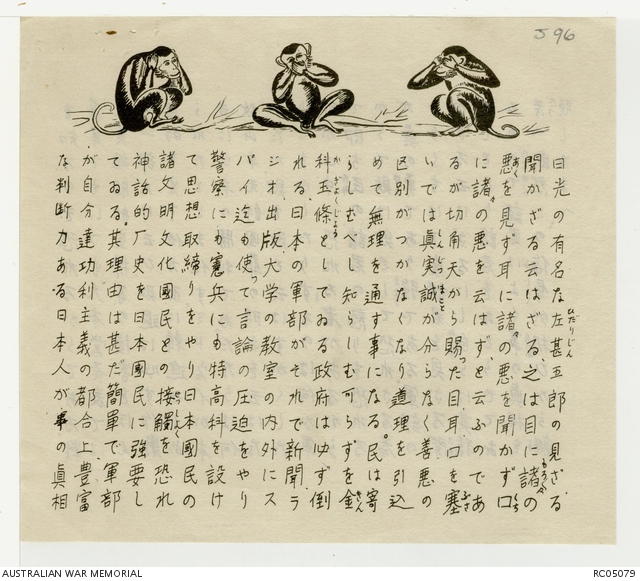 J 96
日光の有名な左甚五郎の見ざる
聞かざる云はざる、之は目に諸の
悪を見ず耳に諸々の悪を聞かず口
に諸々の悪を云はず、と云ふのであ
るが切角天から賜った目、耳、口を塞
いでは眞実誠が分らなく善悪の
区別がつかなくなり道理を引込
めて無理を通す事になる。民は寄
らしむべし知らしむ可らずを金
科玉條としてゐる政府はゆず倒
れる、日本の軍部がそれで新聞、ラ
ジオ、出版、大学の教室の内外にス
パイ迄も使って言論の圧迫をやり
警察にも憲兵にも特高科を設け
て思想取締りをやり日本國民の
諸文明文化國民との接觸を恐れ
神話的厂史を日本國民に強要し
てゐる。其理由は甚だ簡單で軍部
が自分達功利主義の都合上豊富
な判断力ある日本人が事の眞相
AUSTRALIAN WAR MEMORIAL
RC05079